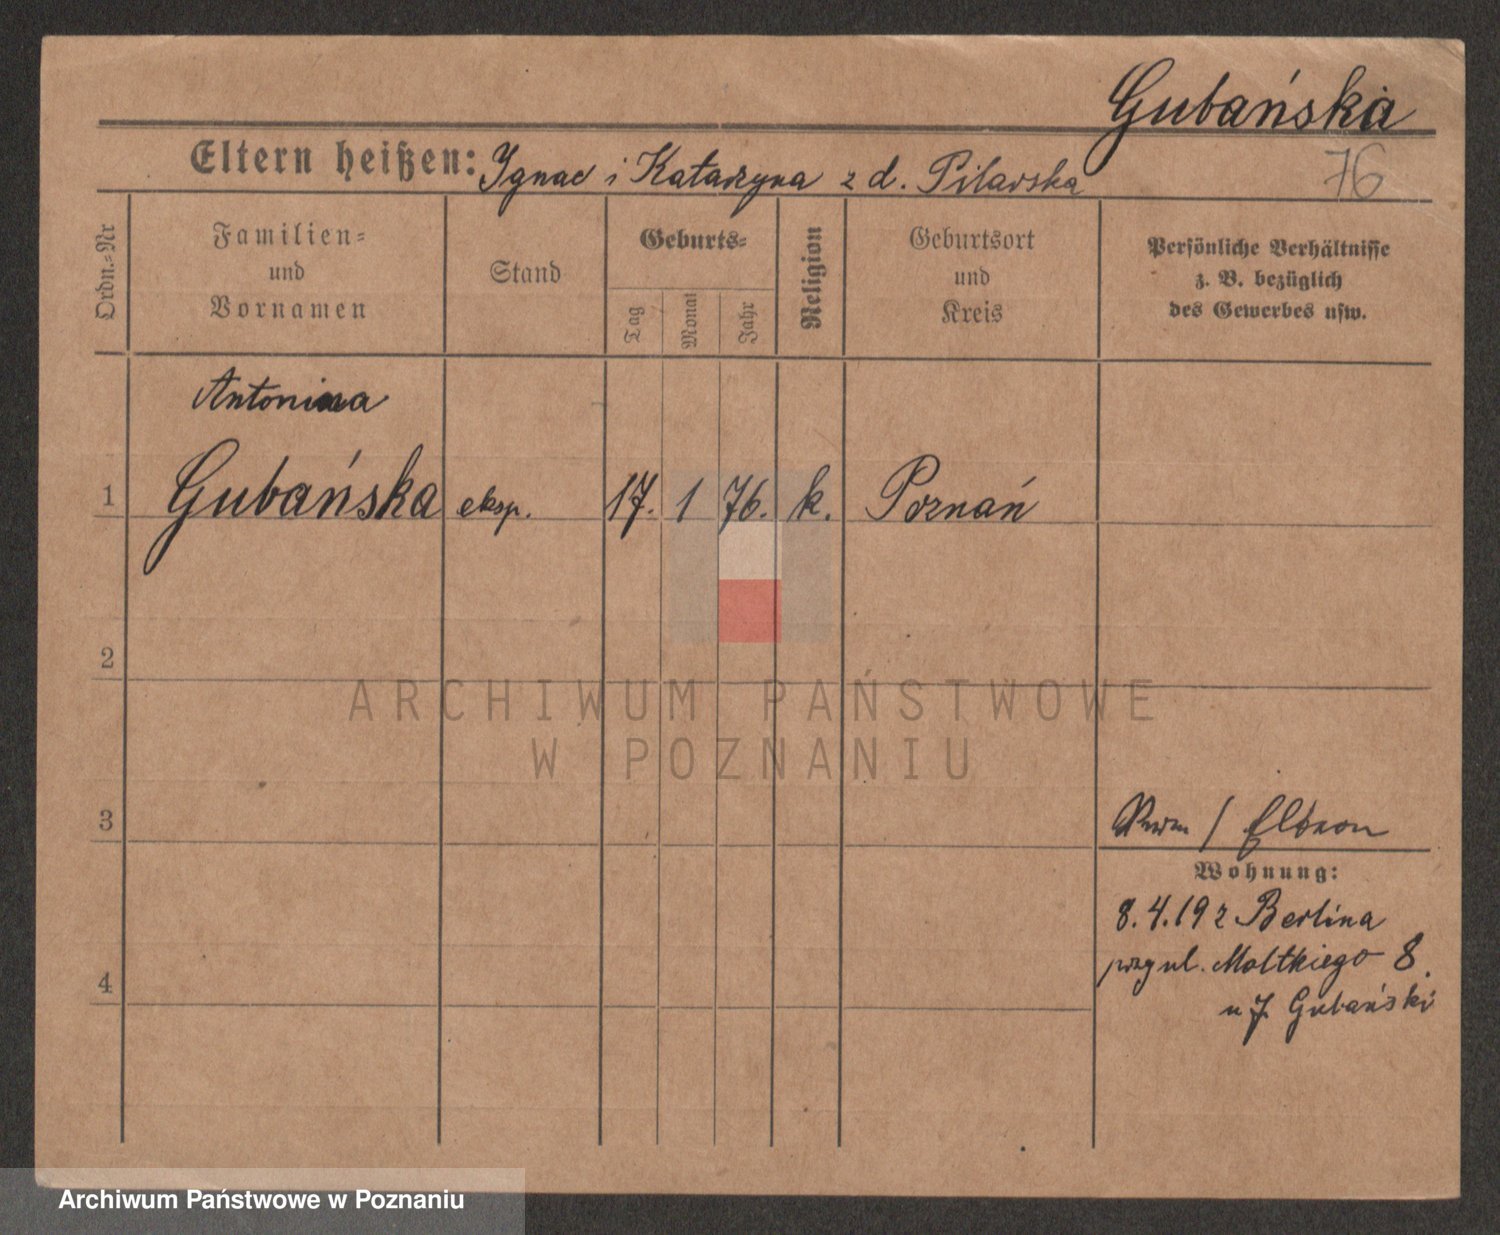 Gubańska
Eltern heißen: Ignac i Katarzyna z d. Pilarska
76
Ordn.-Nr
Familien-
und
Vornamen
Stand
Geburts-
Tag
Monat
Jahr
Religion
Geburtsort
und
Kreis
Persönliche Verhältnisse
z. B. bezüglich
des Gewerbes usw.
Antonina
1 Gubańska eksp. 17. 1 76. k. Poznań
2
ARCHIWUM PAŃSTWOWE
W POZNANIU
3
Wohnung:
8.4.19 z Berlina
przy ul. Moltkiego 8.
u J. Gubański
4
Archiwum Państwowe w Poznaniu